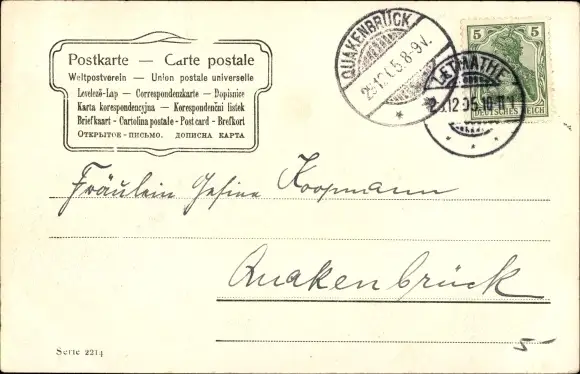 Postkarte — Carte postale
Weltpostverein — Union postale universelle
Levelező-Lap — Correspondenzkarte — Dopisnice
Karta korespondencyjna — Korespondenční lístek
Briefkaart - Cartolina postale - Post card - Brefkort
ОТКРЫТОЕ - ПИСЬМО. ДОПИСНА КАРТА
QUAKENBRÜCK
5.8-9V.
5 5
DEUTSCHES REICH
LETMATHE
12.05.10-11
Fräulein Gesine Koopmann
Quakenbrück
5-
Serie 2214